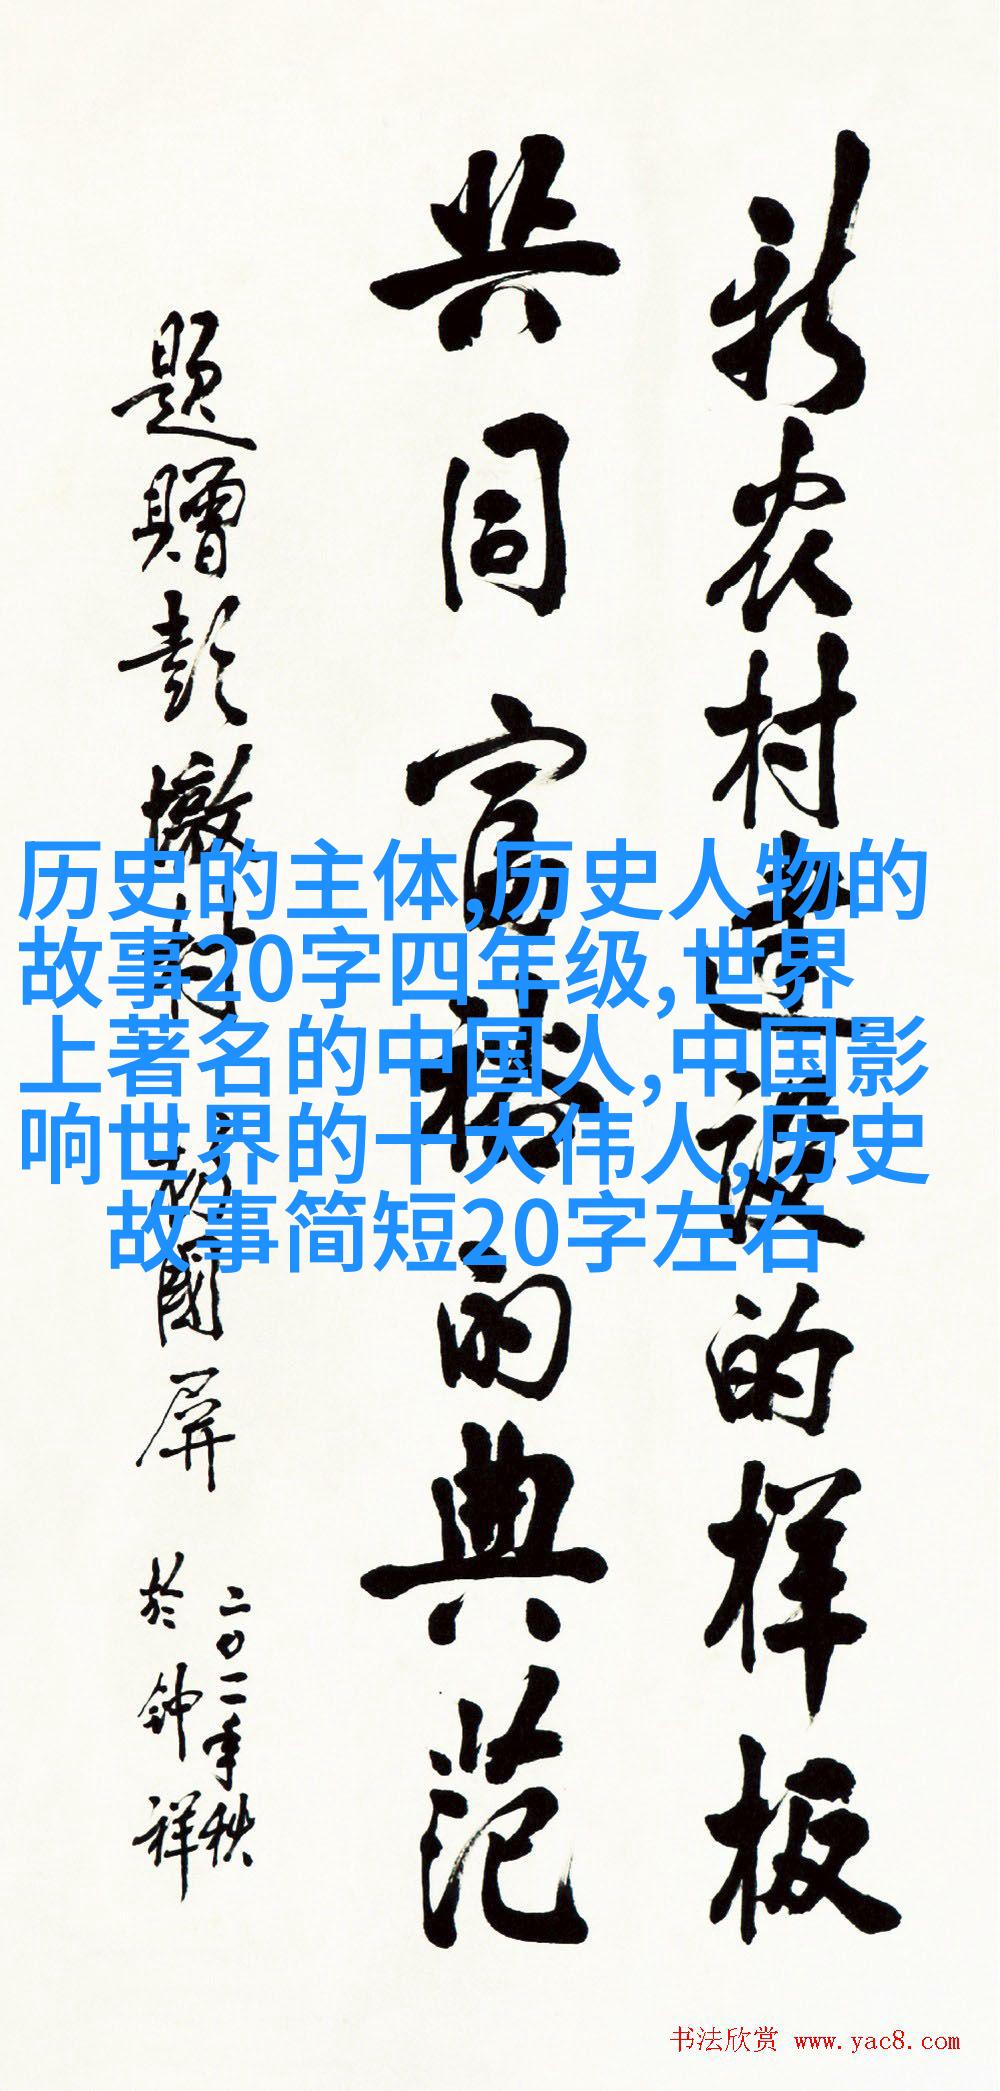 历史的主体,历史人物的
故事20字四年级,世界
上著名的中国人,中国影
响世界的十大伟人,历史
故事简短20字左右
新农村建设的样板
共同富裕的典范
题赠彭墩村 國屏
二〇一一年秋
於钟祥
书法欣赏 www.yac8.com